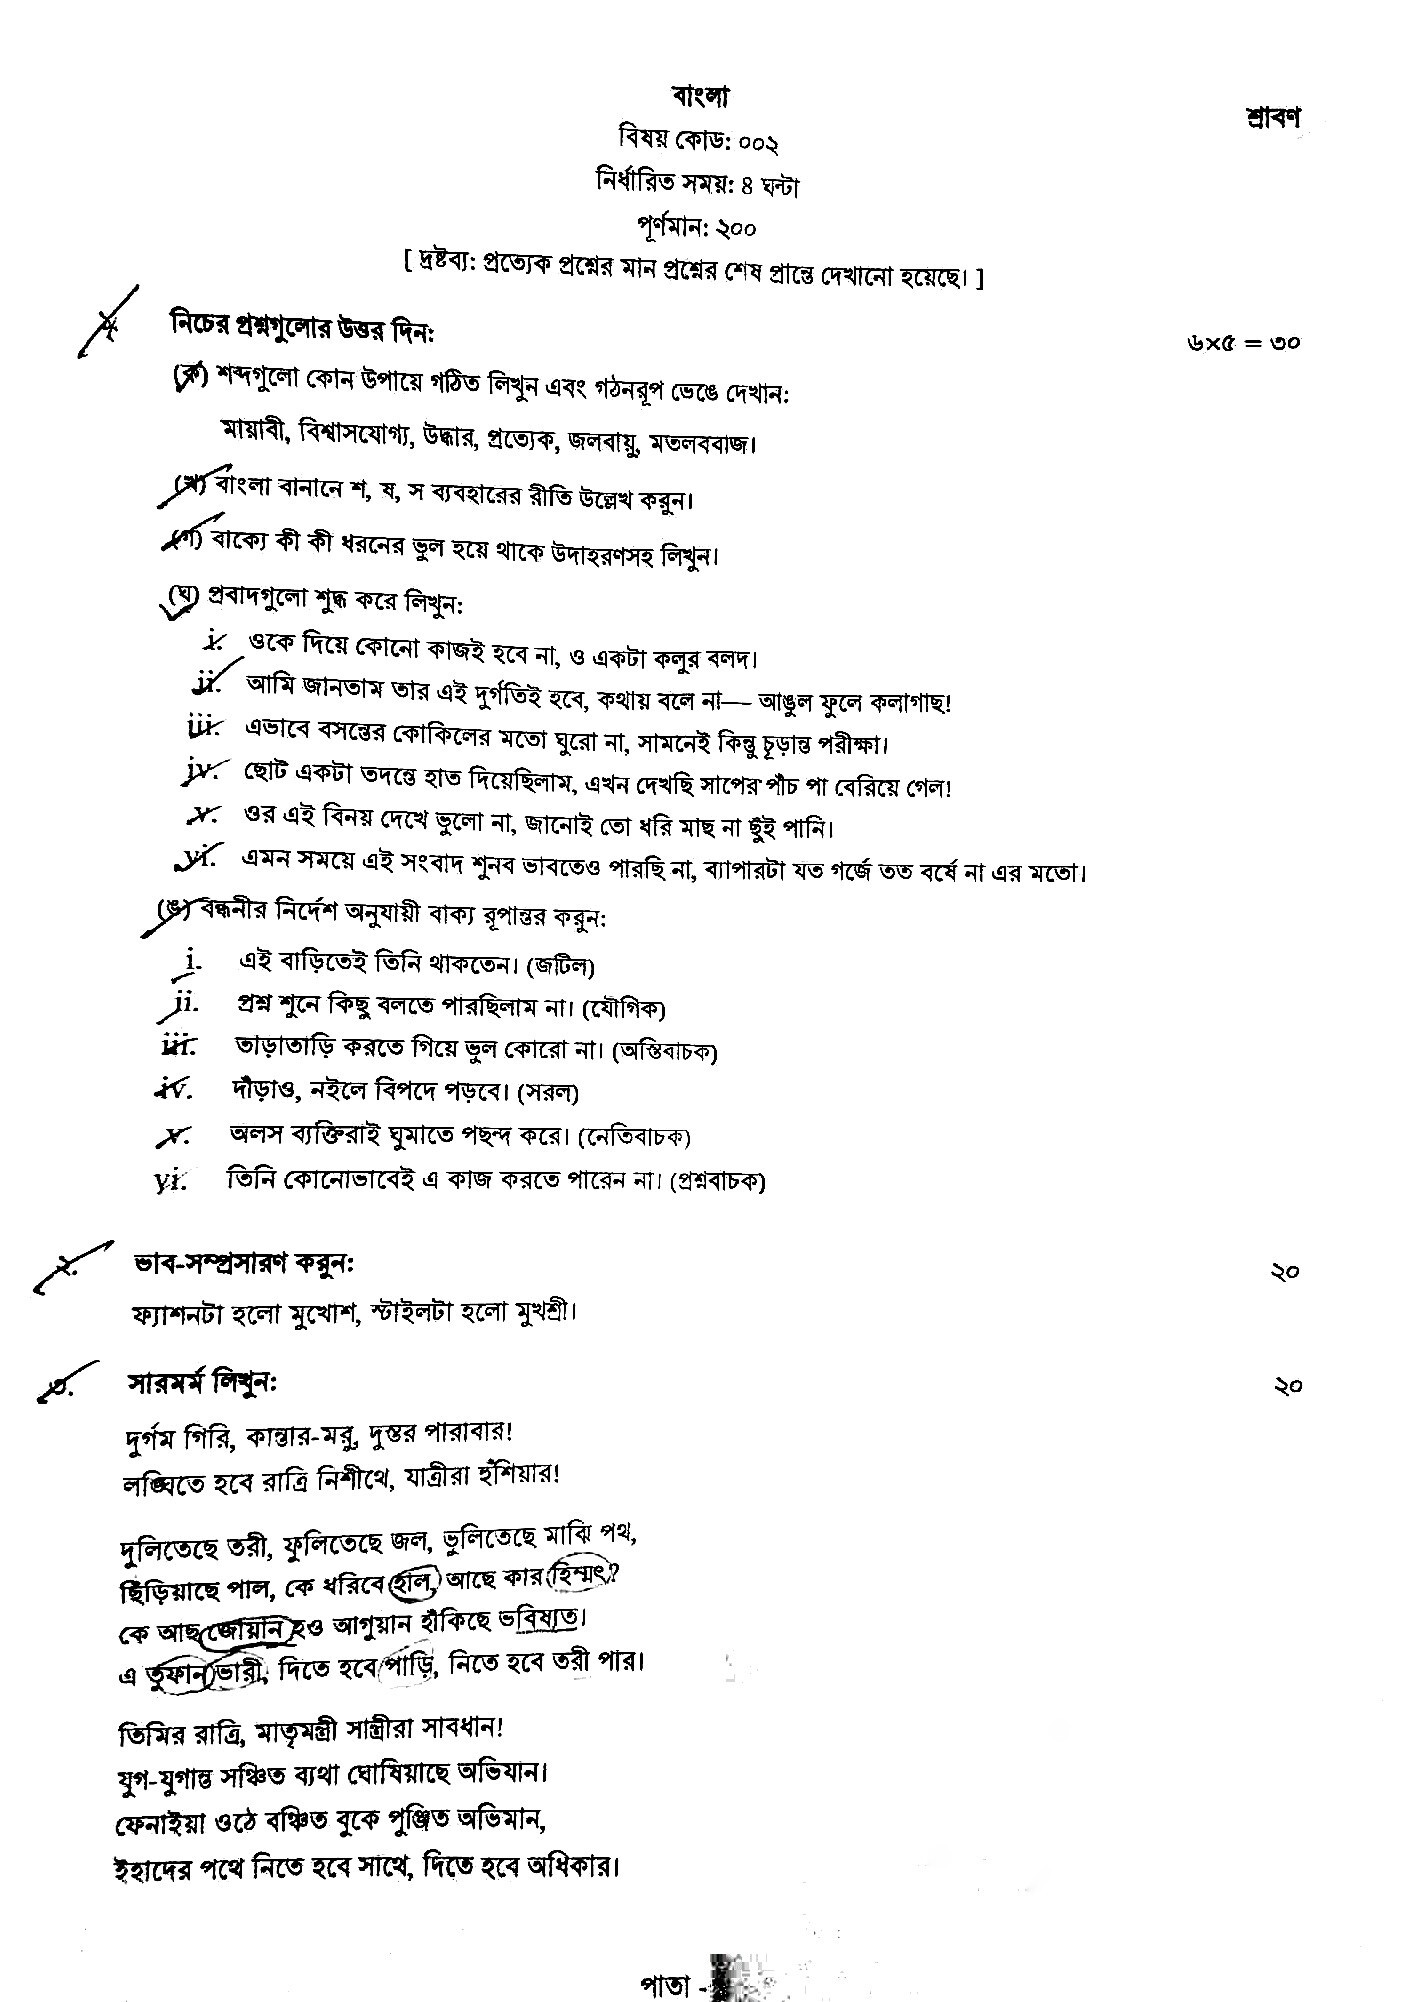 বাংলা
শ্রাবণ
বিষয় কোড: ০০২
নির্ধারিত সময়: ৪ ঘন্টা
পূর্ণমান: ২০০
[ দ্রষ্টব্য: প্রত্যেক প্রশ্নের মান প্রশ্নের শেষ প্রান্তে দেখানো হয়েছে। ]
১. নিচের প্রশ্নগুলোর উত্তর দিন: ৬×৫ = ৩০
(ক) শব্দগুলো কোন উপায়ে গঠিত লিখুন এবং গঠনরূপ ভেঙে দেখান:
মায়াবী, বিশ্বাসযোগ্য, উদ্ধার, প্রত্যেক, জলবায়ু, মতলববাজ।
(খ) বাংলা বানানে শ, ষ, স ব্যবহারের রীতি উল্লেখ করুন।
(গ) বাক্যে কী কী ধরনের ভুল হয়ে থাকে উদাহরণসহ লিখুন।
(ঘ) প্রবাদগুলো শুদ্ধ করে লিখুন:
i. ওকে দিয়ে কোনো কাজই হবে না, ও একটা কলুর বলদ।
ii. আমি জানতাম তার এই দুর্গতিই হবে, কথায় বলে না— আঙুল ফুলে কলাগাছ!
iii. এভাবে বসন্তের কোকিলের মতো ঘুরো না, সামনেই কিন্তু চূড়ান্ত পরীক্ষা।
iv. ছোট একটা তদন্তে হাত দিয়েছিলাম, এখন দেখছি সাপের পাঁচ পা বেরিয়ে গেল!
v. ওর এই বিনয় দেখে ভুলো না, জানোই তো ধরি মাছ না ছুঁই পানি।
vi. এমন সময়ে এই সংবাদ শুনব ভাবতেও পারছি না, ব্যাপারটা যত গর্জে তত বর্ষে না এর মতো।
(ঙ) বন্ধনীর নির্দেশ অনুযায়ী বাক্য রূপান্তর করুন:
i. এই বাড়িতেই তিনি থাকতেন। (জটিল)
ii. প্রশ্ন শুনে কিছু বলতে পারছিলাম না। (যৌগিক)
iii. তাড়াতাড়ি করতে গিয়ে ভুল কোরো না। (অস্তিবাচক)
iv. দাঁড়াও, নইলে বিপদে পড়বে। (সরল)
v. অলস ব্যক্তিরাই ঘুমাতে পছন্দ করে। (নেতিবাচক)
vi. তিনি কোনোভাবেই এ কাজ করতে পারেন না। (প্রশ্নবাচক)
২. ভাব-সম্প্রসারণ করুন: ২০
ফ্যাশনটা হলো মুখোশ, স্টাইলটা হলো মুখশ্রী।
৩. সারমর্ম লিখুন: ২০
দুর্গম গিরি, কান্তার-মরু, দুস্তর পারাবার!
লঙ্ঘিতে হবে রাত্রি নিশীথে, যাত্রীরা হুঁশিয়ার!
দুলিতেছে তরী, ফুলিতেছে জল, ভুলিতেছে মাঝি পথ,
ছিঁড়িয়াছে পাল, কে ধরিবে হাল, আছে কার হিম্মৎ?
কে আছ জোয়ান হও আগুয়ান হাঁকিছে ভবিষ্যত।
এ তুফান ভারী, দিতে হবে পাড়ি, নিতে হবে তরী পার।
তিমির রাত্রি, মাতৃমন্ত্রী সান্ত্রীরা সাবধান!
যুগ-যুগান্ত সঞ্চিত ব্যথা ঘোষিয়াছে অভিযান।
ফেনাইয়া ওঠে বঞ্চিত বুকে পুঞ্জিত অভিমান,
ইহাদের পথে নিতে হবে সাথে, দিতে হবে অধিকার।
পাতা -